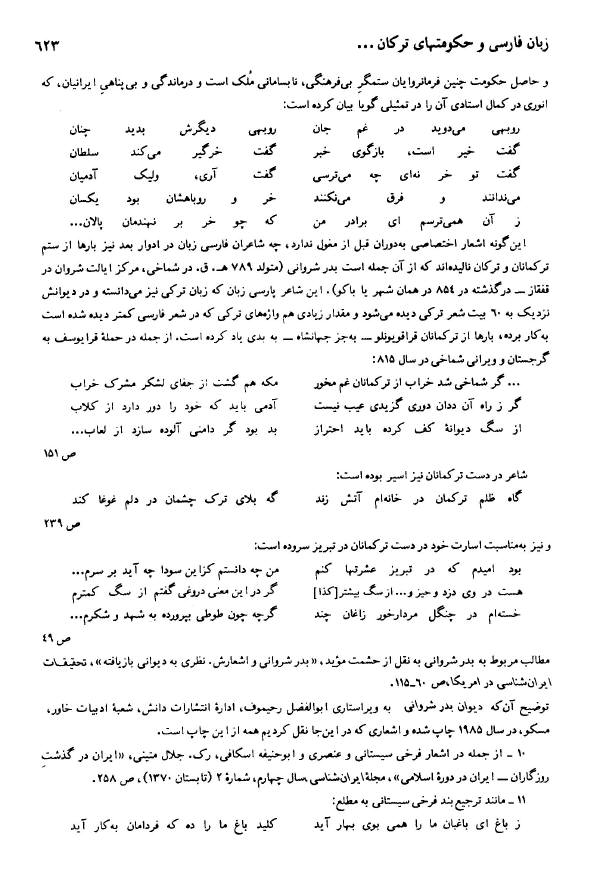 زبان فارسی و حکومتهای ترکان ... ۶۲۳
و حاصل حکومت چنین فرمانروایان ستمگرِ بی‌فرهنگی، نابسامانی مُلک است و درماندگی و بی‌پناهیِ ایرانیان، که
انوری در کمال استادی آن را در تمثیلی گویا بیان کرده است:
روبهی می‌دوید در غم جان روبهی دیگرش بدید چنان
گفت خیر است، بازگوی خبر گفت خرگیر می‌کند سلطان
گفت تو خر نه‌ای چه می‌ترسی گفت آری، ولیک آدمیان
می‌ندانند و فرق می‌نکنند خر و روباهشان بود یکسان
ز آن همی‌ترسم ای برادر من که چو خر بر نهندمان پالان...
این‌گونه اشعار اختصاصی به‌دوران قبل از مغول ندارد، چه شاعران فارسی زبان در ادوار بعد نیز بارها از ستم
ترکمانان و ترکان نالیده‌اند که از آن جمله است بدر شروانی (متولد ۷۸۹ هـ. ق. در شماخی، مرکز ایالت شروان در
قفقاز ــ درگذشته در ۸۵۴ در همان شهر یا باکو). این شاعر پارسی زبان که زبان ترکی نیز می‌دانسته و در دیوانش
نزدیک به ۶۰ بیت شعر ترکی دیده می‌شود و مقدار زیادی هم واژه‌های ترکی که در شعر فارسی کمتر دیده شده است
به‌کار برده، بارها از ترکمانان قراقویونلو ــ به‌جز جهانشاه ــ به بدی یاد کرده است. از جمله در حملهٔ قرایوسف به
گرجستان و ویرانی شماخی در سال ۸۱۵:
... گر شماخی شد خراب از ترکمانان غم مخور مکه هم گشت از جفای لشکر مشرک خراب
گر ز راه آن ددان دوری گزیدی عیب نیست آدمی باید که خود را دور دارد از کلاب
از سگ دیوانهٔ کف کرده باید احتراز بد بود گر دامنی آلوده سازد از لعاب...
ص ۱۵۱
شاعر در دست ترکمانان نیز اسیر بوده است:
گاه ظلم ترکمان در خانه‌ام آتش زند گه بلای ترک چشمان در دلم غوغا کند
ص ۲۳۹
و نیز به‌مناسبت اسارت خود در دست ترکمانان در تبریز سروده است:
بود امیدم که در تبریز عشرتها کنم من چه دانستم کزاین سودا چه آید بر سرم...
هست در وی دزد و حیز و... از سگ بیشتر[کذا] گر در این معنی دروغی گفتم از سگ کمترم
خسته‌ام در چنگل مردارخور زاغان چند گرچه چون طوطی بپرورده به شهد و شکرم...
ص ۴۹
مطالب مربوط به بدر شروانی به نقل از حشمت مؤید، «بدر شروانی و اشعارش. نظری به دیوانی بازیافته»، تحقیقات
ایران‌شناسی در امریکا، ص ۶۰ـ۱۱۵.
توضیح آن‌که دیوان بدر شروانی به ویراستاری ابوالفضل رحیموف، ادارهٔ انتشارات دانش، شعبهٔ ادبیات خاور،
مسکو، در سال ۱۹۸۵ چاپ شده و اشعاری که در این‌جا نقل کردیم همه از این چاپ است.
۱۰ ـ از جمله در اشعار فرخی سیستانی و عنصری و ابوحنیفه اسکافی، رک. جلال متینی، «ایران در گذشتِ
روزگاران ــ ایران در دورهٔ اسلامی»، مجلهٔ ایران‌شناسی سال چهارم، شمارهٔ ۲ (تابستان ۱۳۷۰)، ص ۲۵۸.
۱۱ ـ مانند ترجیع بند فرخی سیستانی به مطلع:
ز باغ ای باغبان ما را همی بوی بهار آید کلید باغ ما را ده که فردامان به‌کار آید